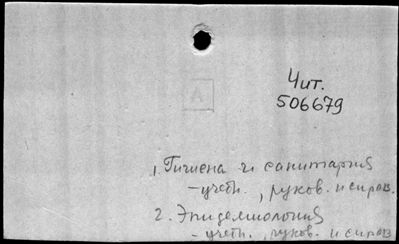 Чит.
506679
А
1. Гигиена и санитария
- учебн., руков. и справ.
2. Эпидемиология
- учебн., руков. и справ.